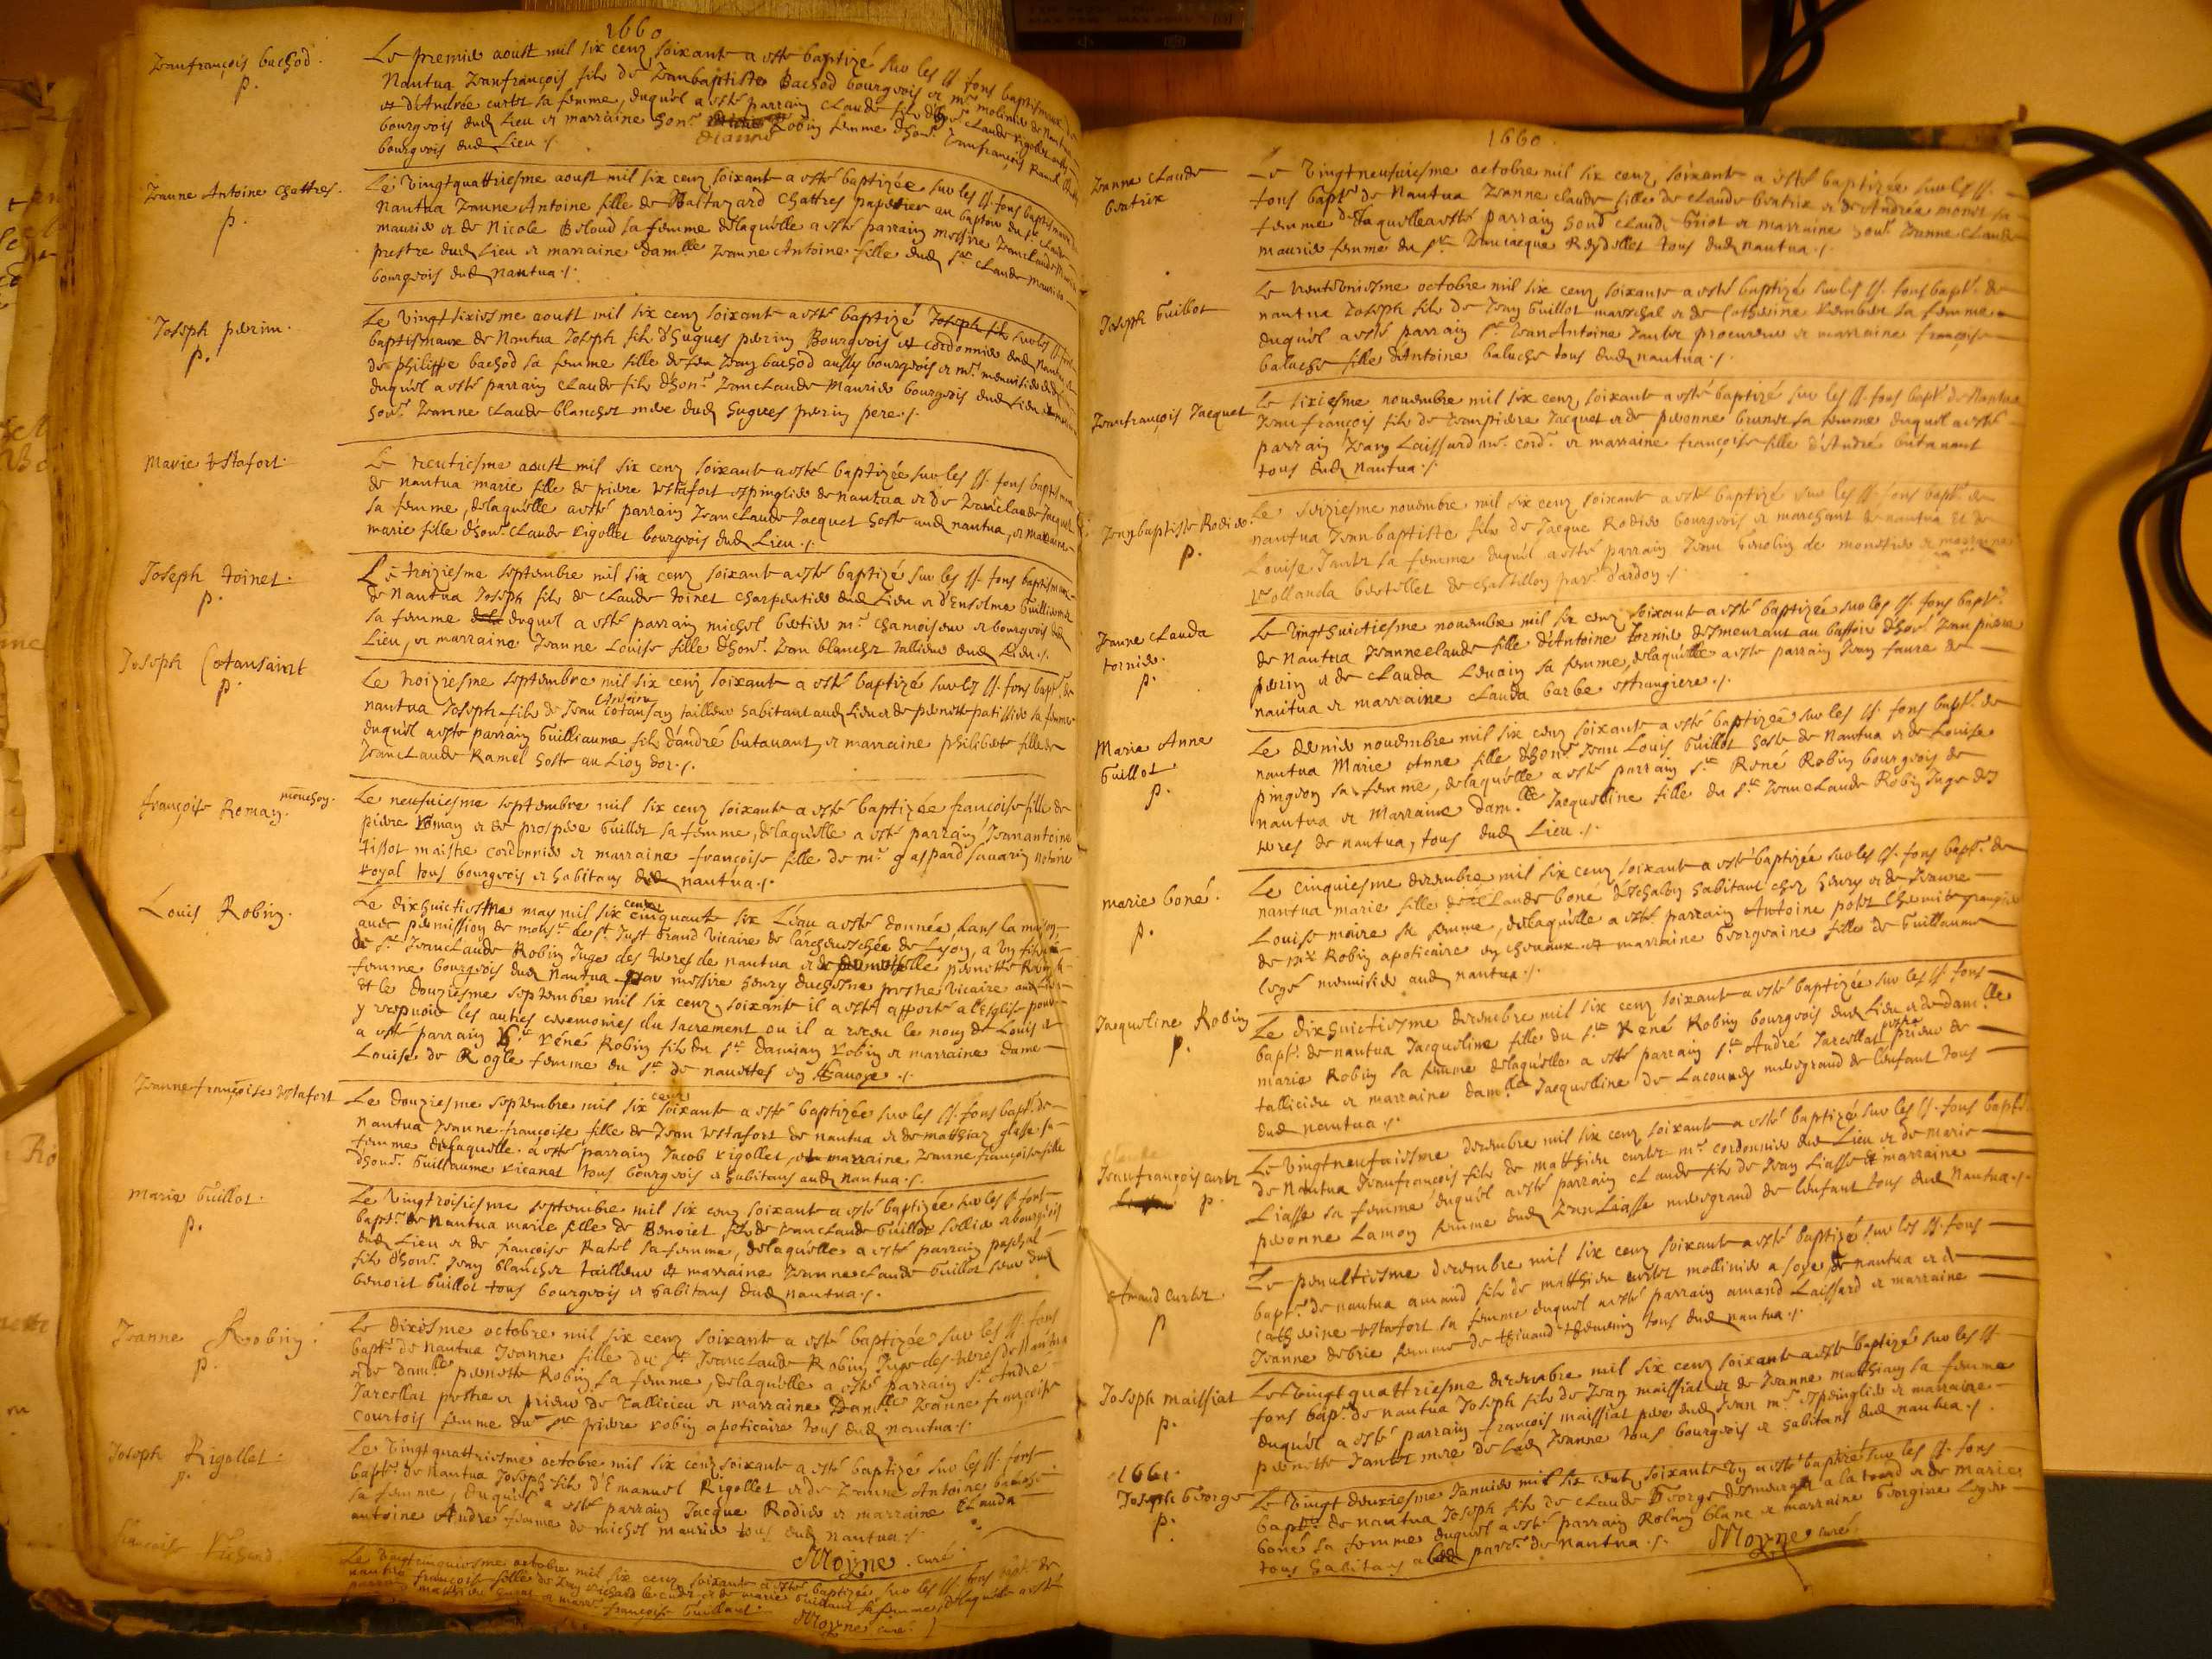 1660
Jeanfrançois bachod.
p.
Le premier aoust mil six cens soixante a esté baptizé sur les ss. fons baptismaux de
Nantua Jeanfrançois fils de Jeanbaptiste Bachod bourgeois et mre molinier de Nantua
et d'Andrée curtet sa femme, duquel a esté parrain Claude fils d'honr Claude Rigollet aussy
bourgeois dud Lieu et marraine honr Dianne Robin femme d'honr Jeanfrançois Ramel
bourgeois dud Lieu ./.
Jeanne Antoine Chattres.
p.
Le Vingtquattriesme aoust mil six cens soixante a esté baptizée sur les ss. fons baptismaux de
Nantua Jeanne Antoine fille de Baltazard Chattres papetier au baptoir du sr Claude
maurier et de Nicole Beloud sa femme delaquelle a esté parrain messire Jeanclaude
prestre dud Lieu et marraine damlle Jeanne Antoine fille dud sr Claude maurier
bourgeois dud nantua ./.
Joseph perrin.
p.
Le Vingtsixiesme aoust mil six cens soixante a esté baptizé Joseph fils sur les ss. fons
baptismaux de Nantua Joseph fils d'Hugues perrin Bourgeois et cordonnier dud Nantua
de philippe bachod sa femme fille de feu Jean bachod aussy bourgeois et mre menuisier dud
duquel a esté parrain Claude fils d'honr Jeanclaude Maurier bourgeois dud Lieu
honr Jeanne Claude blanchet mere dud hugues perrin pere ./.
Marie Estafort.
Le trentiesme aoust mil six cens soixante a esté baptizée sur les ss. fons baptismaux
de nantua marie fille de pierre Estafort espinglier de nantua et de Jeanclaude Jacquet
sa femme, delaquelle a esté parrain Jeanclaude Jacquet hoste aud nantua, et marraine
marie fille d'honr Claude Rigollet bourgeois dud Lieu ./.
Joseph toinet.
p.
Le troiziesme septembre mil six cens soixante a esté baptizé sur les ss. fons baptismaux
de Nantua Joseph fils de Claude toinet charpentier dud Lieu et d'Enselme Guilliermet
sa femme duquel a esté parrain michel bertier mre chamoiseur et bourgeois dud
Lieu, et marraine Jeanne Louise fille d'honr Jean blanchet tallieur dud Lieu ./.
Joseph Cotansaint
p.
Le troiziesme septembre mil six cens soixante a esté baptizé sur les ss. fons bapt. de
Antoine
nantua Joseph fils de Jean Cotansain tailleur habitant aud Lieu et de pernette patissier sa femme
duquel a esté parrain Guilliaume fils d'andré butavant, et marraine philiberte fille de
Jeanclaude Ramel hoste au Lion dor ./.
mouchon.
françoise Roman.
Le neufviesme septembre mil six cens soixante a esté baptizée françoise fille de
pierre Roman et de prospere Guillot sa femme, delaquelle a esté parrain Jeanantoine
tissot maistre cordonnier et marraine françoise fille de mre gaspard savarin notaire
royal tous bourgeois et habitans dud nantua ./.
Louis Robin.
Le dixhuictiesme may mil six cens cinquante six L'eau a esté donnée, dans la maison
avec permission de monsr de st Just Grand Vicaire de l'archevesché de Lyon, a un fils
de sr Jeanclaude Robin Juge des terres de nantua et de damoiselle pernette Robin sa
femme bourgeois dud Nantua par messire henry duchesne prestre vicaire aud Lieu
Et le douziesme septembre mil six cens soixante il a esté apporté a l'Esglise pour
y recepvoir les autres ceremonies du sacrement ou il a receu le nom de Louis et
a esté parrain sr Réné Robin fils du sr damian Robin et marraine dame
Louise de Rogle femme du sr de navettes en
Jeanne françoise Estafort
Le douziesme septembre mil six cens soixante a esté baptizée sur les ss. fons bapt. de
Nantua Jeanne françoise fille de Jean Estafort de nantua et de matthiaz glasse sa
femme delaquelle a esté parrain Jacob Rigollet, et marraine Jeanne françoise fille
d'honr Guillaume Vicanet tous bourgeois et habitans aud nantua ./.
marie Guillot.
p.
Le Vingtroisiesme septembre mil six cens soixante a esté baptizée sur les ss. fons
bapt. de Nantua marie fille de Benoict fils de Jeanclaude Guillot sellier et bourgeois
dud Lieu et de françoise Ratel sa femme, delaquelle a esté parrain paschal
fils d'honr Jean blanchet tailleur et marraine Jeanneclaude Guillot sœur dud
benoict Guillot tous bourgeois et habitans dud nantua ./.
Jeanne Robin.
p.
Le dixiesme octobre mil six cens soixante a esté baptizée sur les ss. fons
bapt. de Nantua Jeanne fille du sr Jeanclaude Robin Juge des terres de Nantua
et de damlle pernette Robin sa femme, delaquelle a esté parrain sr André
Jarcellat prestre et prieur de Tallicieu et marraine Damlle Jeanne françoise
Courtois femme du sr pierre robin apoticaire tous dud nantua ./.
Joseph Rigollet.
p.
Le Vingtquattriesme octobre mil six cens soixante a esté baptizé sur les ss. fons
bapt. de Nantua Joseph fils d'Emanuel Rigollet et de Jeanne Antoine baluche
sa femme, duquel a esté parrain Jacque Rodier et marraine Clauda
antoine André femme de michel maurier tous dud nantua ./.
Moyne curé
françoise Vichard.
Le Vingtcinquiesme octobre mil six cens soixante a esté baptizée sur les ss. fons bapt. de
nantua françoise fille de Jean Vichard et de marie Guillaut sa femme, delaquelle a esté
parrain matthieu et marr. françoise Guillaut.
Moyne curé.
1660
Jeanne Claude
beatrix
Le Vingtneufviesme octobre mil six cens soixante a esté baptizée sur les ss.
fons bapt. de Nantua Jeanne claude fille de Claude beatrix et de Andréa monet sa
femme delaquelle a esté parrain honr Claude Griot et marraine honr Jeanne Claude
maurier femme du sr Jeanjacque Reydellet tous dud nantua ./.
Joseph Guillot
Le trenteuniesme octobre mil six cens soixante a esté baptizé sur les ss. fons bapt. de
nantua Joseph fils de Jean Guillot mareschal et de Catherine sa femme
duquel a esté parrain sr Jean Antoine Jantet procureur et marraine françoise
baluche fille d'Antoine baluche tous dud nantua ./.
Jeanfrançois Jacquet
Le sixiesme novembre mil six cens soixante a esté baptizé sur les ss. fons bapt. de Nantua
Jeanfrançois fils de Jeanpierre Jacquet et de pernonne brunet sa femme duquel a esté
parrain Jean Laissard mre cord. et marraine françoise fille d'André butavant
tous dud nantua ./.
Jeanbaptiste Rodier.
p.
Le seiziesme novembre mil six cens soixante a esté baptizé sur les ss. fons bapt. de
nantua Jeanbaptiste fils de Jacque Rodier bourgeois et marchant de nantua et de
Louise Jantet sa femme duquel a esté parrain Jean Genolin de monestier et marraine
Rollanda bertellet de chastillon parr. d'ardon ./.
Janne Clauda
tornier.
p.
Le Vingthuictiesme novembre mil six cens soixante a esté baptizée sur les ss. fons bapt.
de Nantua Jeanneclaude fille d'Antoine tornier desmeurant au battoir d'honr Jean pierre
perrin et de Clauda Levrain sa femme, delaquelle a esté parrain Jean faure de
nantua et marraine Clauda barbe estrangiere ./.
Marie Anne
Guillot.
p.
Le dernier novembre mil six cens soixante a esté baptizée sur les ss. fons bapt. de
nantua Marie Anne fille d'honr Jean Louis Guillot hoste de Nantua et de Louise
pingeon sa femme, delaquelle a esté parrain sr René Robin bourgeois de
nantua et Marraine damlle Jacqueline fille du sr Jeanclaude Robin Juge des
terres de nantua, tous dud Lieu ./.
marie boné.
p.
Le cinquiesme decembre mil six cens soixante a esté baptizée sur les ss. fons bapt. de
nantua marie fille de Claude boné d'Eschalon habitant chez henry et de Jeanne
Louise moire sa femme, delaquelle a esté parrain Antoine potet L'hermite grangier
de mr Robin apoticaire en chenaux et marraine Georgeaine fille de Guillaume
Logé menuisier aud nantua ./.
Jacqueline Robin
p.
Le dixhuictiesme decembre mil six cens soixante a esté baptizée sur les ss. fons
bapt. de nantua Jacqueline fille du sr René Robin bourgeois dud Lieu et de damlle
marie Robin sa femme delaquelle a esté parrain sr André Jarcellat prestre prieur de
tallicieu et marraine damlle Jacquelline de Lacoua mere grand de l'enfant tous
dud nantua ./.
Jeanfrançois curtet
p.
Le Vingtneufviesme decembre mil six cens soixante a esté baptizé sur les ss. fons bapt.
de Nantua Jeanfrançois fils de matthieu curtet mre cordonnier dud Lieu et de Marie
Liasse sa femme duquel a esté parrain Claude fils de Jean Liasse et marraine
pernonne Lamon femme dud Jean Liasse mere grand de l'enfant tous dud Nantua ./.
Amand curtet.
p
Le penultiesme decembre mil six cens soixante a esté baptizé sur les ss. fons
bapt. de nantua amand fils de matthieu curtet mollinier a soye de nantua et de
Catherine Estafort sa femme duquel a esté parrain amand Laissard et marraine
Jeanne debrie femme de thivand thevenin tous dud nantua ./.
Joseph maissiat
p.
Le Vingtquattriesme decembre mil six cens soixante a esté baptizé sur les ss.
fons bap. de nantua Joseph fils de Jean maissiat et de Jeanne matthian sa femme
duquel a esté parrain françois maissiat pere dud Jean mre espinglier et marraine
pernette Jantet mere de lad Jeanne tous bourgeois et habitans dud nantua ./.
1661.
Joseph George
p.
Le Vingt deuxiesme Janvier mil six cent soixante un a esté baptizé sur les ss. fons
bapt. de nantua Joseph fils de Claude George desmeurant a la tourd et de Marie
boné sa femme duquel a esté parrain Rolan blanc et marraine Georgine Logé
tous habitans a lad parr. de Nantua ./.
Moyne curé.